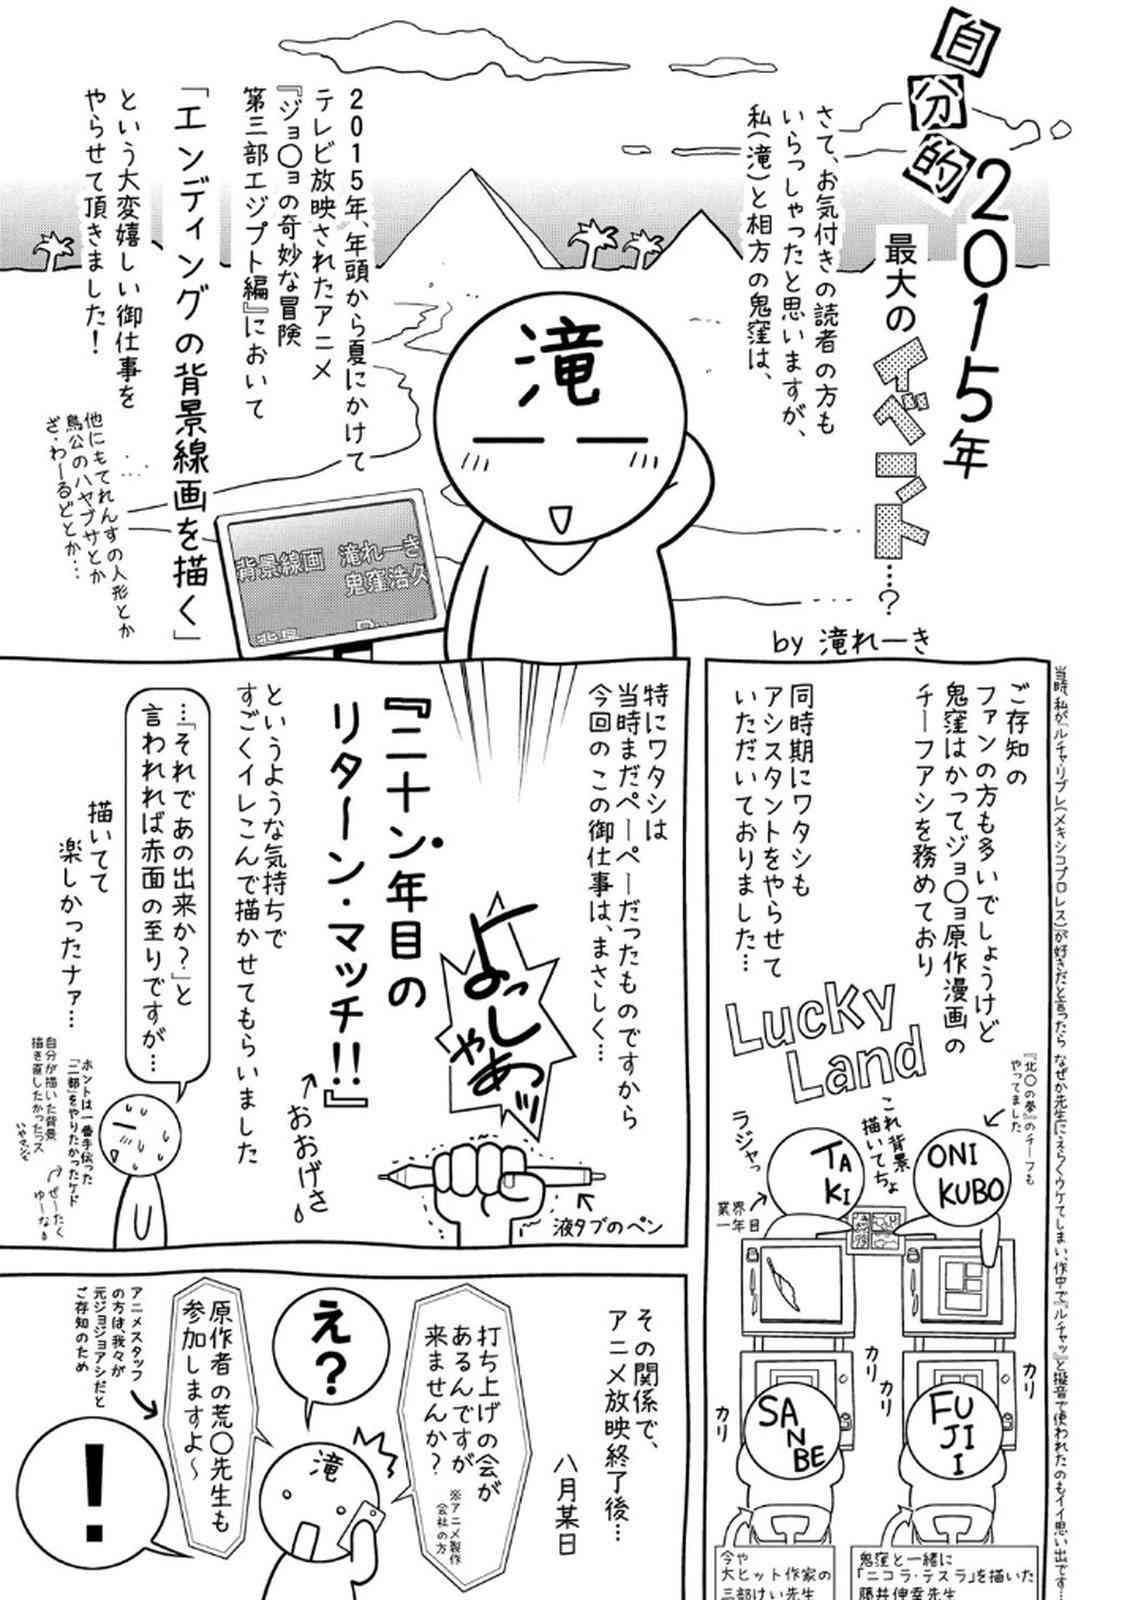 自分的
2015年
最大の
イベント…?
by 滝れーき
さて、お気付きの読者の方も
いらっしゃったと思いますが、
私(滝)と相方の鬼窪は、
2015年、年頭から夏にかけて
テレビ放映されたアニメ
『ジョ〇ョの奇妙な冒険
第三部エジプト編』において
「エンディングの背景線画を描く」
という大変嬉しい御仕事を
やらせて頂きました!
他にもてれんすの人形とか
鳥公のハヤブサとか
ざ・わーるどとか…
滝
背景線画 滝れーき
鬼窪浩久
当時、私が「ルチャ・リブレ(メキシコプロレス)が好きだと言ったら なぜか先生にえらくウケてしまい、作中で『ルチャッ』と擬音で使われたのもイイ思い出です…
ご存知の
ファンの方も多いでしょうけど
鬼窪はかってジョ〇ョ原作漫画の
チーフアシを務めており
同時期にワタシも
アシスタントをやらせて
いただいておりました…
Lucky
Land
『北〇の拳』のチーフも
やってました
これ背景
描いてちょ
ラジャっ
業界
一年目
ONI
KUBO
TA
KI
カリ
カリ
カリ
カリ
FU
JI
I
SA
N
BE
鬼窪と一緒に
「ニコラ・テスラ」を描いた
藤井伸幸先生
今や
大ヒット作家の
三部けい先生
特にワタシは
当時まだペーペーだったものですから
今回のこの御仕事は、まさしく…
『二十ン年目の
リターン・マッチ!!』
よっしゃあッ
液タブのペン
おおげさ
というような気持ちで
すごくイレこんで描かせてもらいました
…「それであの出来か?」と
言われれば赤面の至りですが…
描いてて
楽しかったナァ…
ホントは一番手伝った
「二部」をやりたかったケド
ぜーたく
ゆーな
自分が描いた背景
描き直したかったっス
その関係で、
アニメ放映終了後…
八月某日
打ち上げの会が
あるんですが
来ませんか?
※アニメ製作
会社の方
え?
滝
原作者の荒〇先生も
参加しますよ〜
アニメスタッフ
の方は、我々が
元ジョジョアシだと
ご存知のため
!